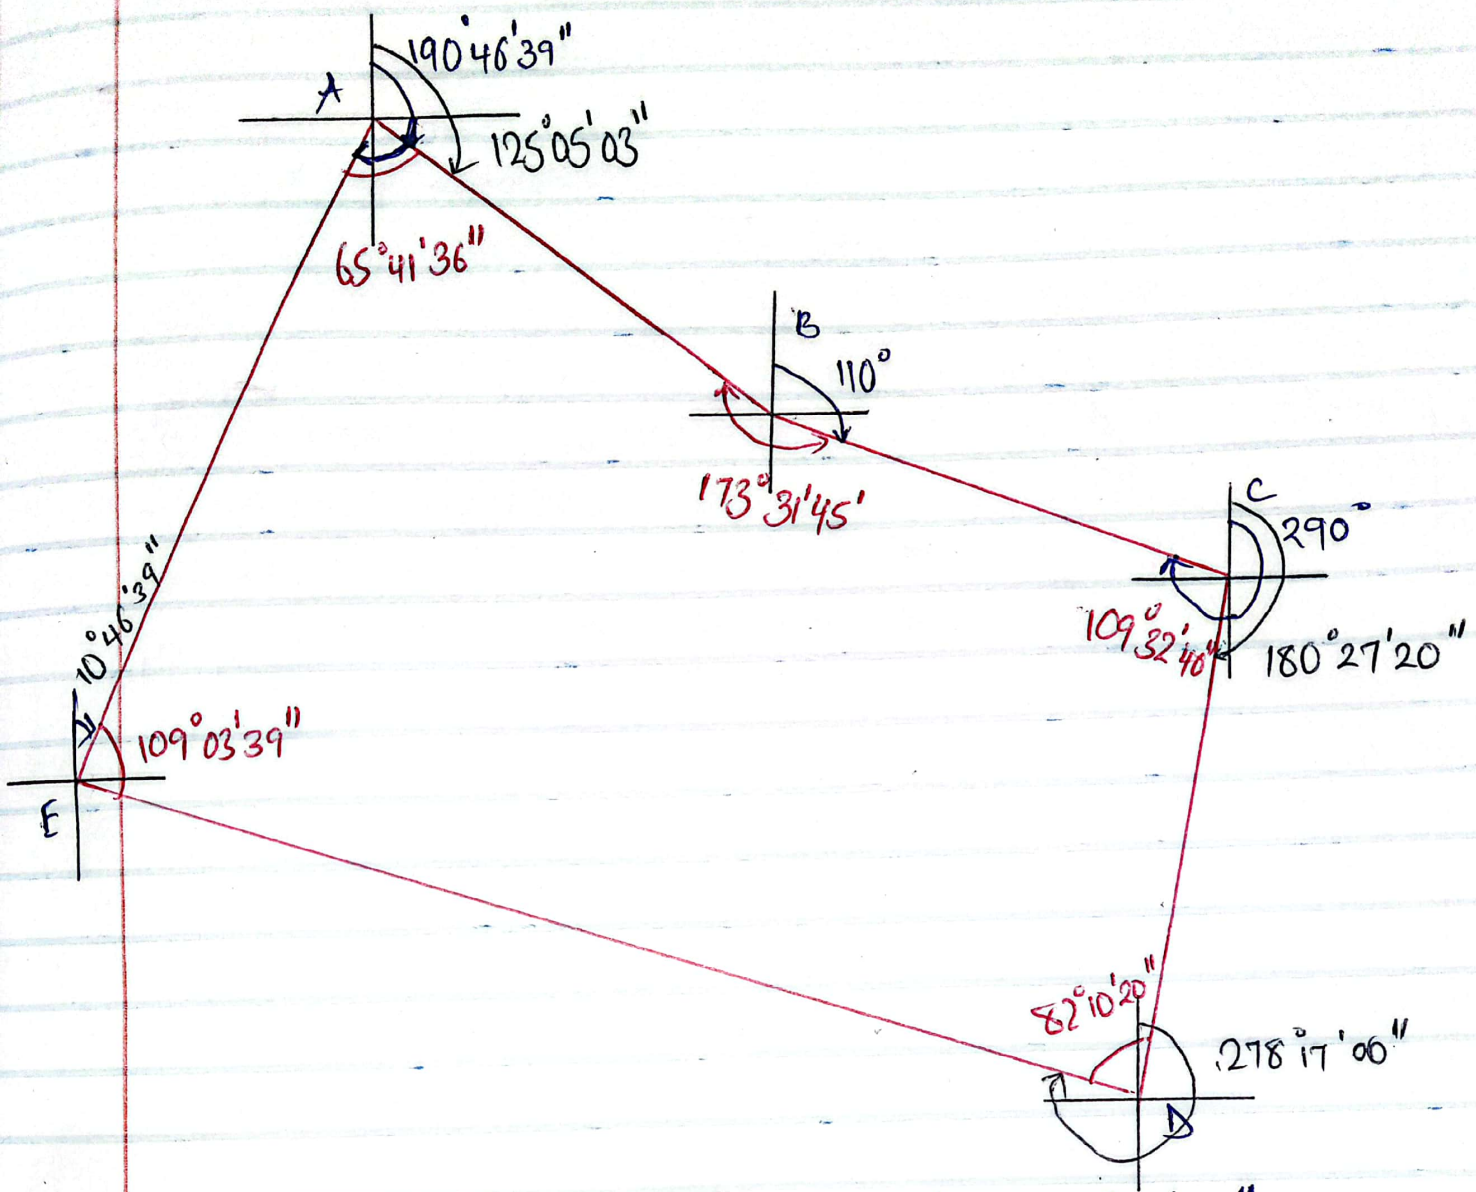 190°46'39"
A
125°05'03"
65°41'36"
B
110°
173°31'45'
C
290°
109°32'40"
180°27'20"
10°46'39"
109°03'39"
E
82°10'20"
278°17'00"
D